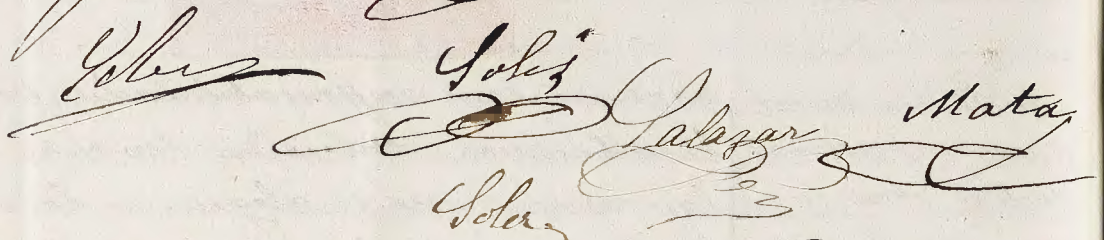 Solis Salazar Mata
Soler